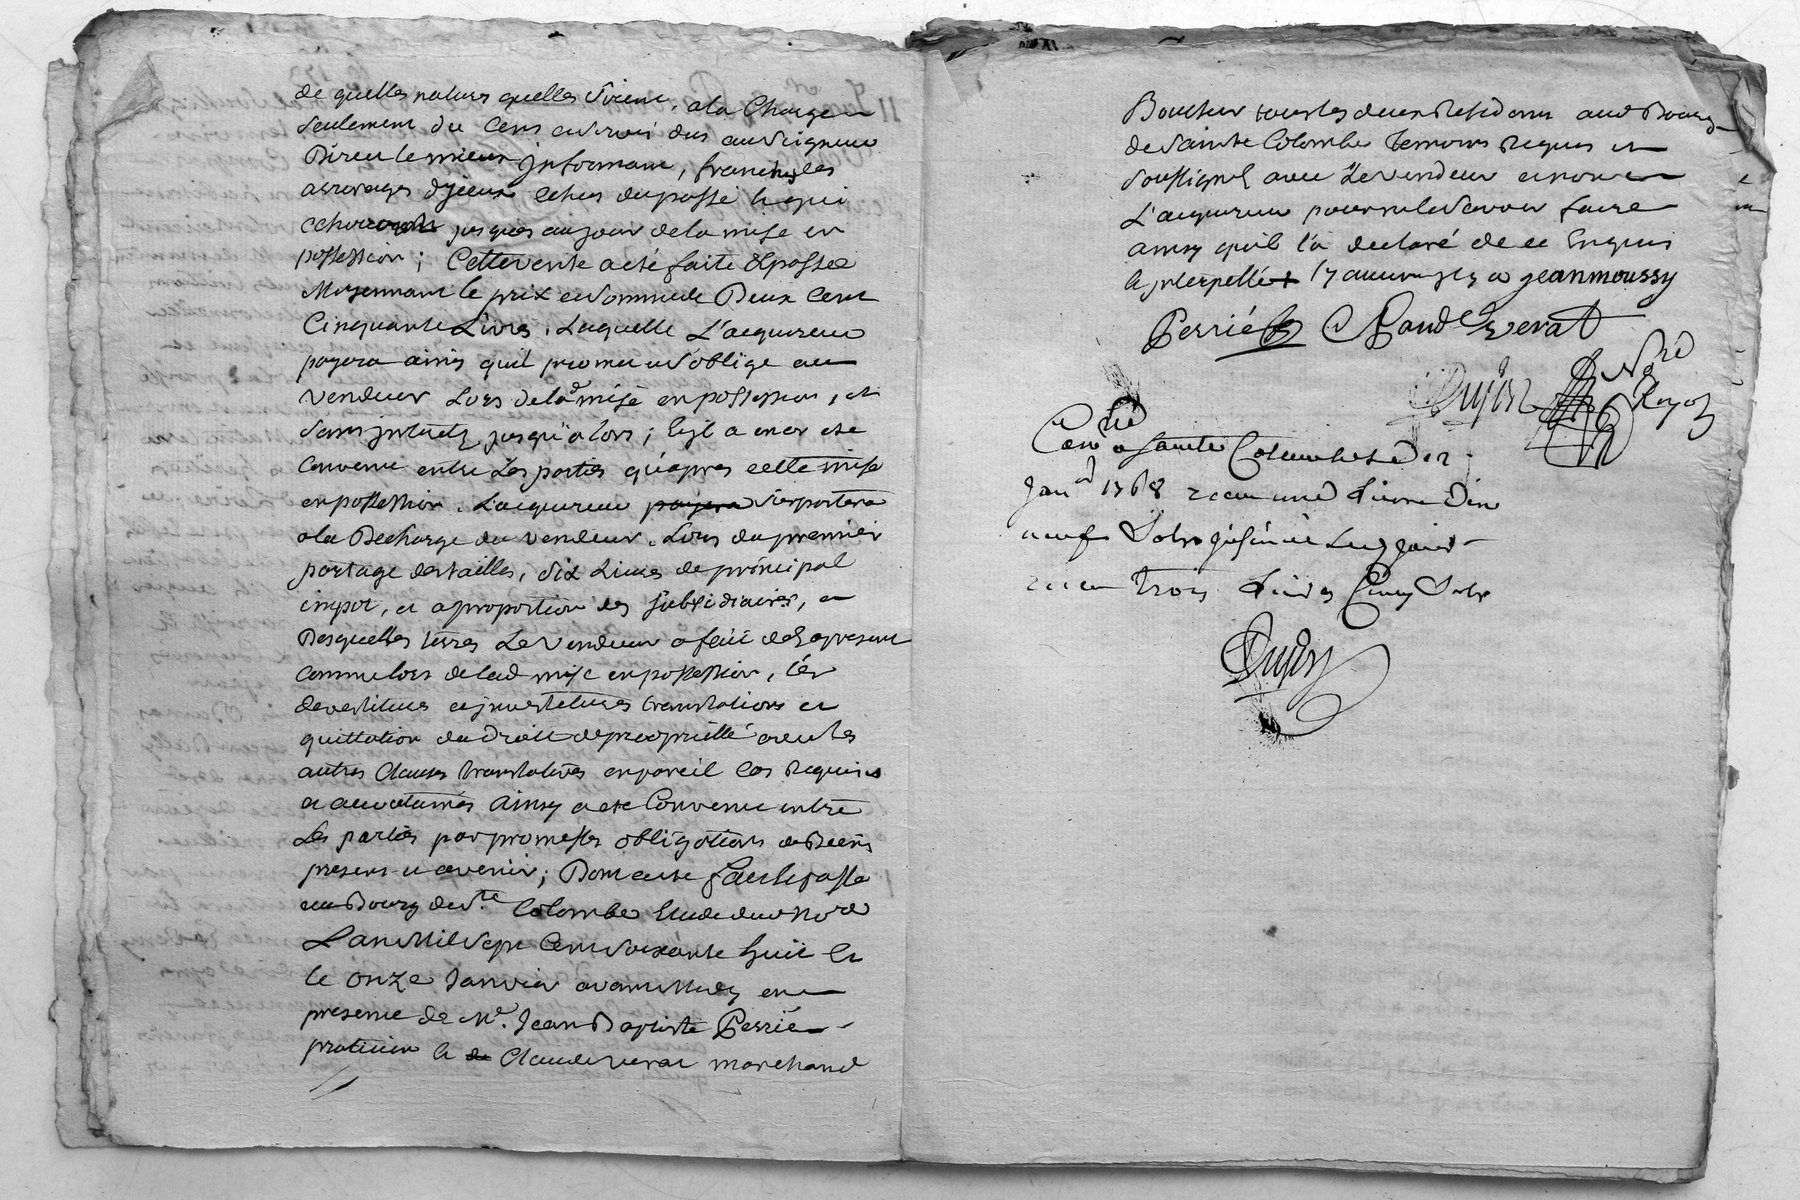 de quelles natures quelles Soient, a la Charge
Seulement du Cens et Servis dus au Seigneur
Direct le mieux informant, franches les
arrerages d'jceux echus du passé
jusques au jour de la mise en
possession; Cette vente a eté faite & passée
Moyennant le prix et Somme de Deux Cent
Cinquante Livres, Laquelle L'acquereur
payera ainsy quil promet et s'oblige au
vendeur Lors de la mise en possession, et
Sans jnterets jusqu'a lors; a encor eté
Convenu entre Les parties qu'apres cette mise
en possession L'acquereur payera S'exportera
a la Decharge du vendeur Lors du premier
partage des tailles, Six Livres de principal
impot, et a proportion des Subsidiaires,
Desquelles terres Le vendeur a fait dez a present
Comme lors de lad mise en possession, les
devestitures et jnvestitures translations et
quittation du Droit de proprieté avec les
autres Clauses translatives en pareil Cas Requises
et accoutumés Ainsy a eté Convenu entre
Les parties par promesses obligations de Biens
presens et avenir; Dont acte fait et passé
au Bourg de Ste Colombe Etude dud Nore
L'an Mil Sept Cent Soixante huit et
le onze Janvier avant Midy en
presence de Me. Jean Baptiste Perrié
praticien et de Claude verat marchand
Boucher tous les deux Residans aud Bourg
de Sainte Colombe temoins Requis et
Soussignés avec Le vendeur et non
L'acquereur pour ne le Scavoir faire
ainsy quil l'a declaré de ce Enquis
et jnterpellé + jean moussy
Perrié Claude verat
Dujast Nre Royal
Conrlé a Sainte Colombe le 12
Janer 1768 reçu une Livre Dix
neuf Sols
reçu trois Livres Cinq Sols
Dujast